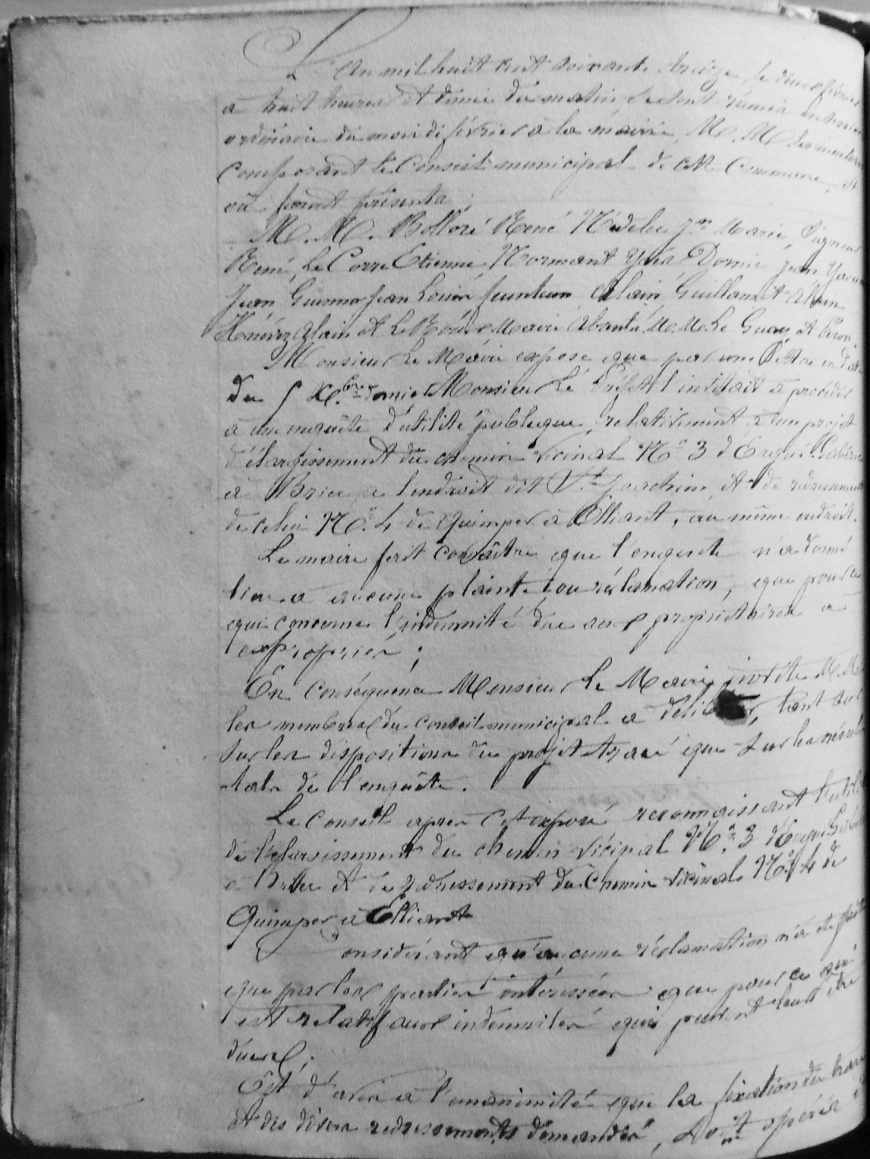 L'An mil huit cent soixante treize le deux février
a huit heures et demie du matin se sont réunis en session
ordinaire du mois de février à la mairie, M.M. les membres
composant le Conseil municipal de cette Commune, et
où furent présents ;
M.M. Bolloré René Nédelec Jn Marie,
René, Le Corre Etienne Normant Yves Domic Jean
Jean Guimar Jean Louis feunteun Alain, Guillamet Alain
Alain et Le Maire absents M.M. Le Guay et
Monsieur Le Maire expose que par une lettre en date
du 5 Xbre dernier Monsieur Le Préfet l'invitait à procéder
a une enquête d'utilité publique, relativement à un projet
d'élargissement du chemin vicinal No 3 d'Ergué-Gabéric
a Briec a l'endroit dit St Joachim, et de redressement
de celui No 4 de Quimper à Elliant, au même endroit.
Le maire fait connaître que l'enquete n'a donné
lieu a aucune plainte ou réclamation, que pour ce
qui concerne l'indemnité due aux propriétaires a
exproprier ;
En conséquence Monsieur Le Maire invite M.M.
les membres du conseil municipal a délibérer, tant sur
sur les dispositions du projet tracé que sur les résul
tats de l'enquête.
Le Conseil après cet exposé reconnaissant l'utilité
de l'élargissement du chemin vicinal No 3 d'Ergué-Gabéric
a Briec et de redressement du chemin vicinal No 4 de
Quimper a Elliant
Considérant qu'aucune réclamation n'a été faite
que par les parties intéressées que pour ce qui
est relatif aux indemnités qui peuvent leur être
dues ;
Est d'avis a l'unanimité que la fixation du
et des divers redressements demandés, soit opérée